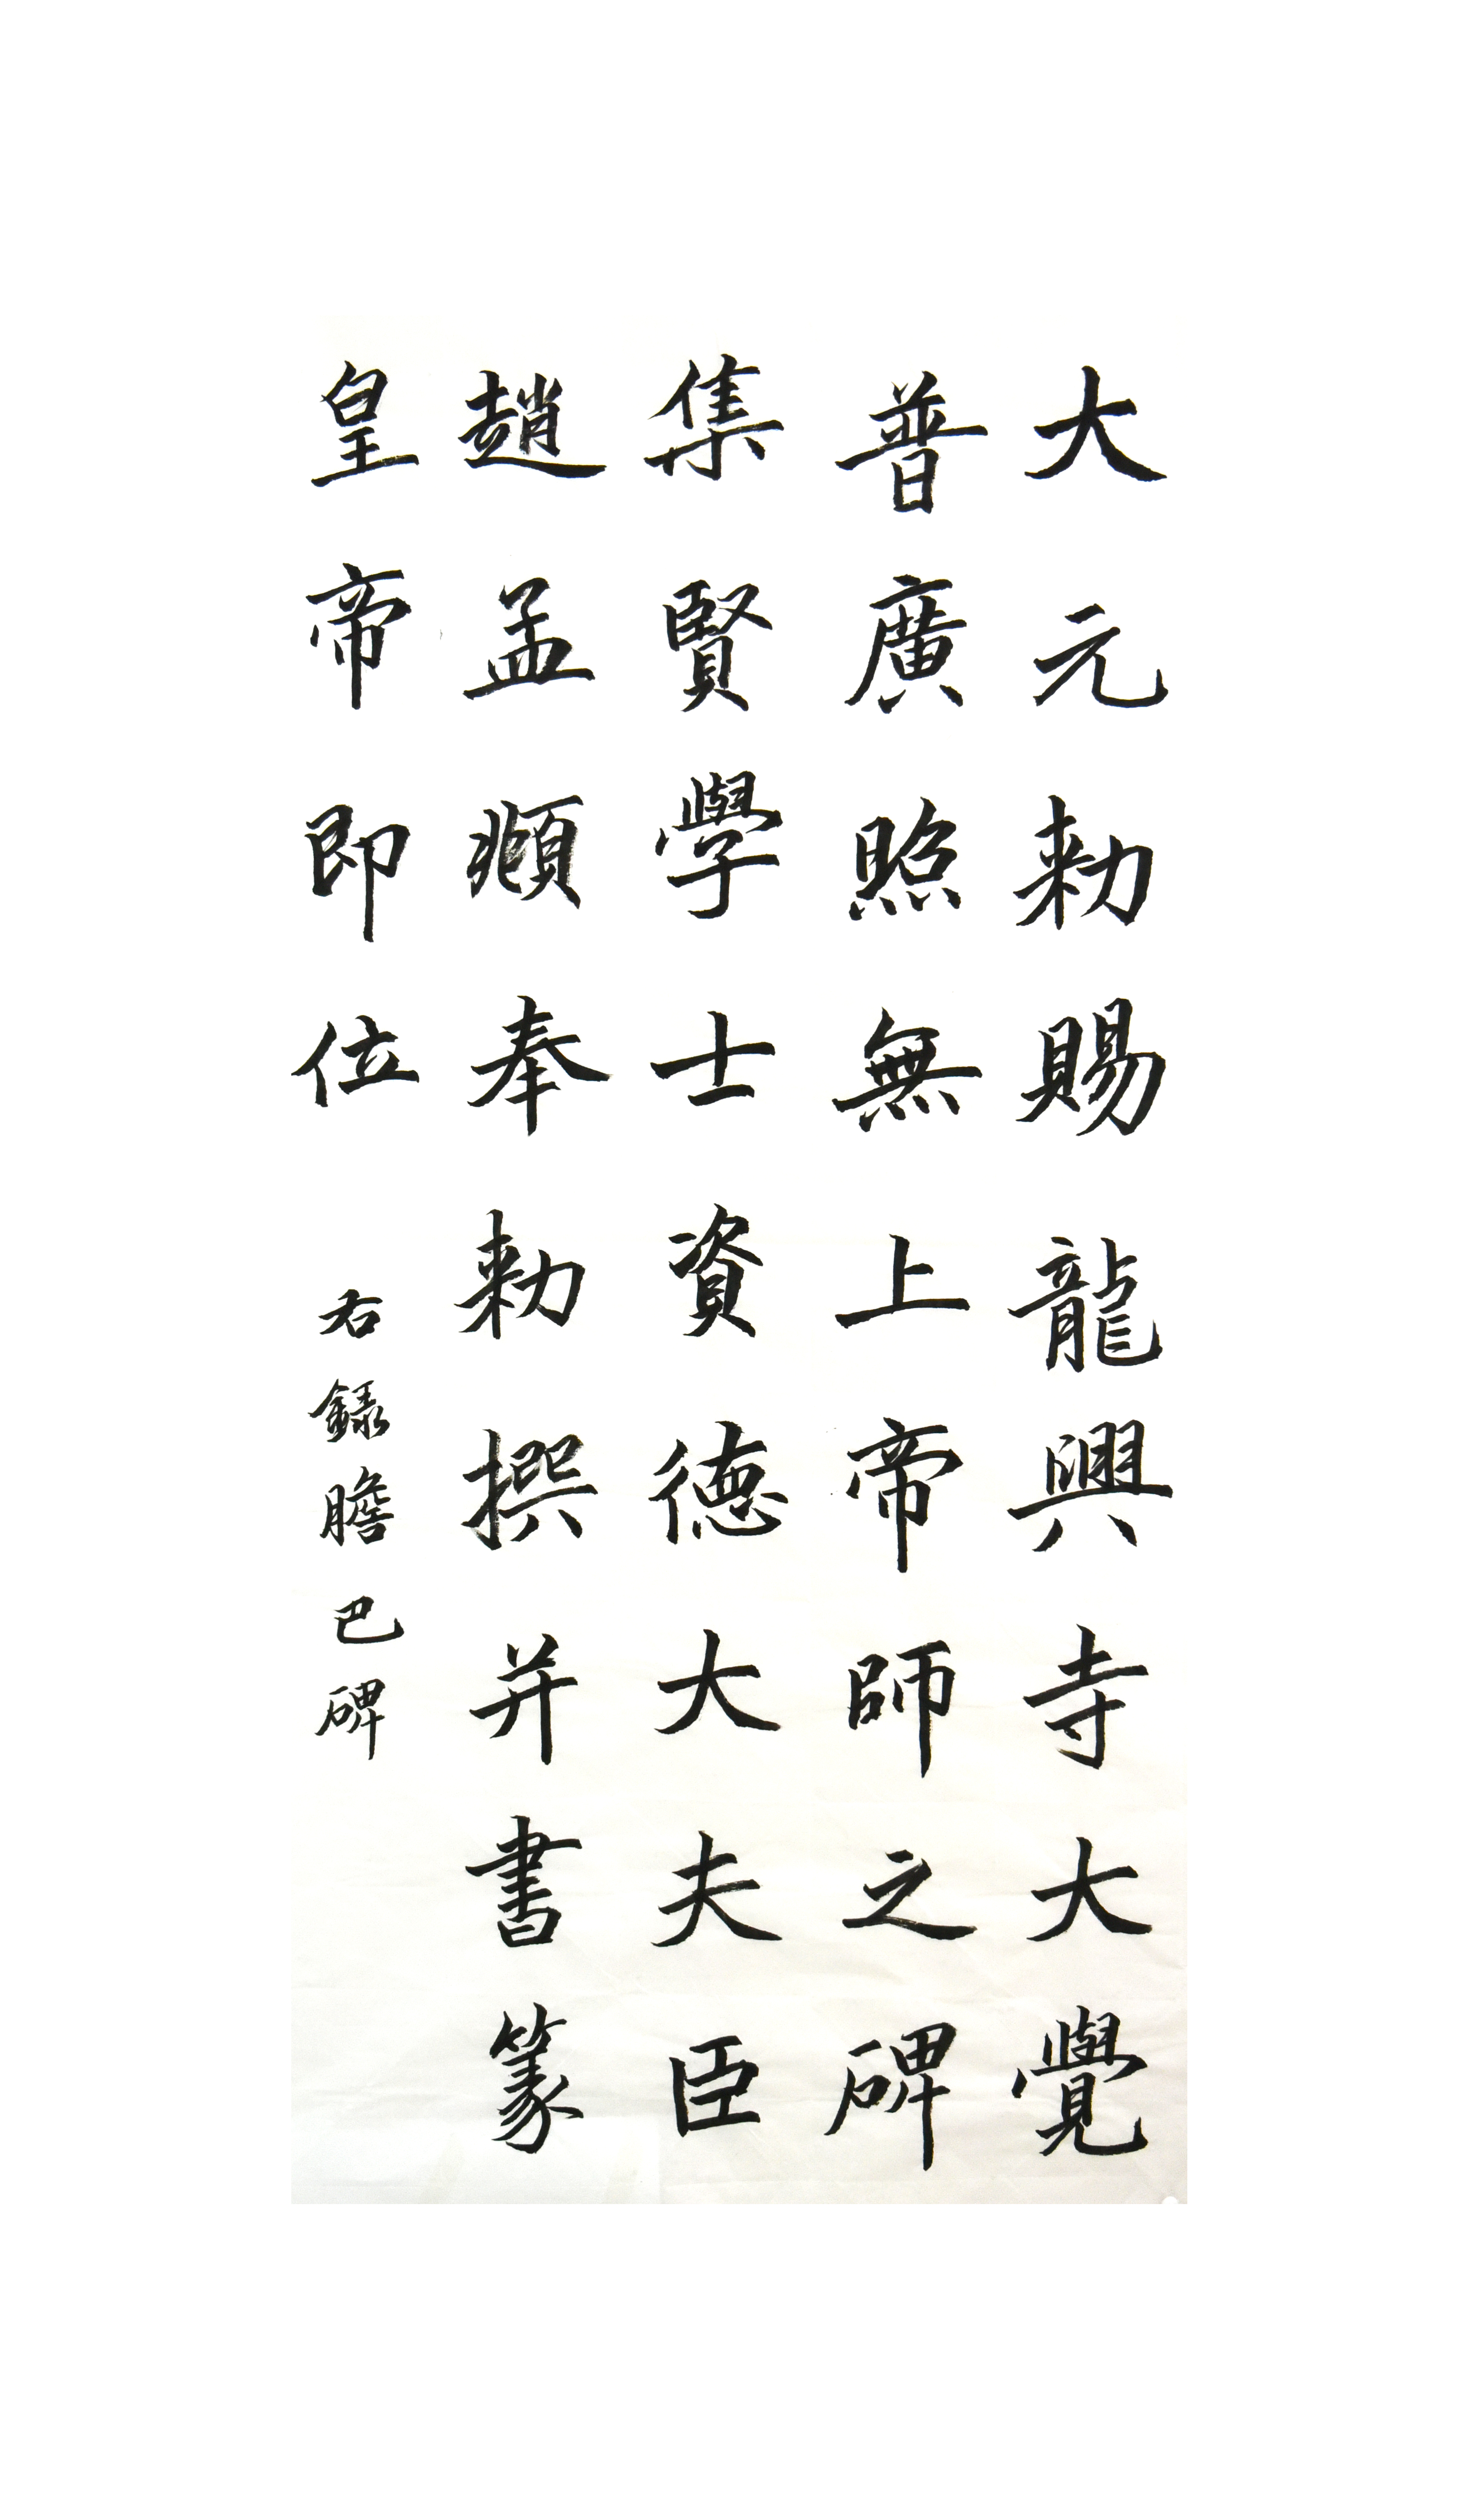 大元敕賜龍興寺大覺
普廣照無上帝師之碑
集賢學士資德大夫臣
趙孟頫奉敕撰并書篆
皇帝即位
右録膽巴碑